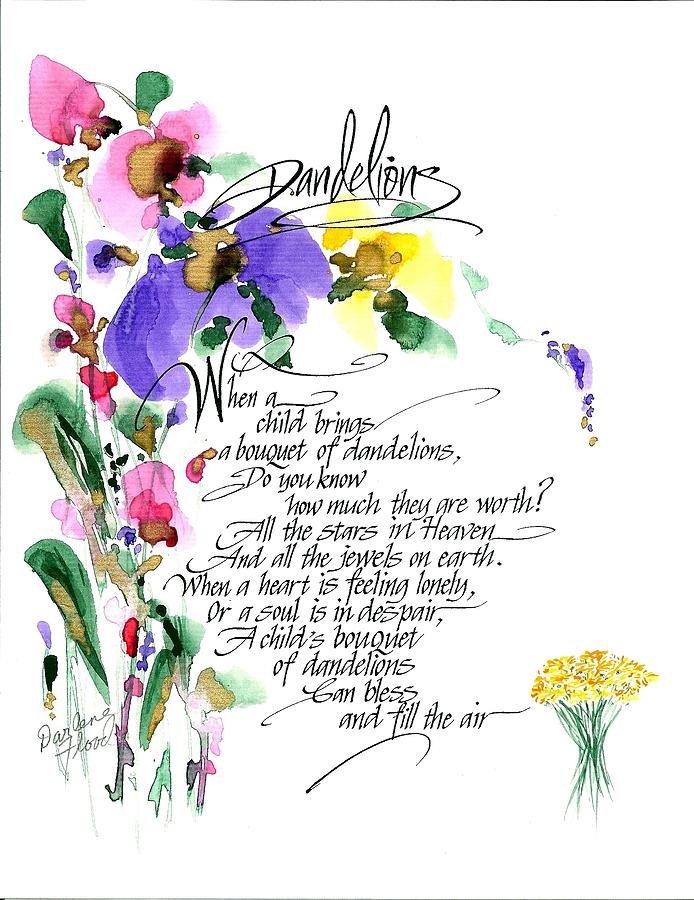 Dandelions
When a
child brings
a bouquet of dandelions,
Do you know
how much they are worth?
All the stars in Heaven
And all the jewels on earth.
When a heart is feeling lonely,
Or a soul is in despair,
A child's bouquet
of dandelions
Can bless
and fill the air
Darlene
Flood